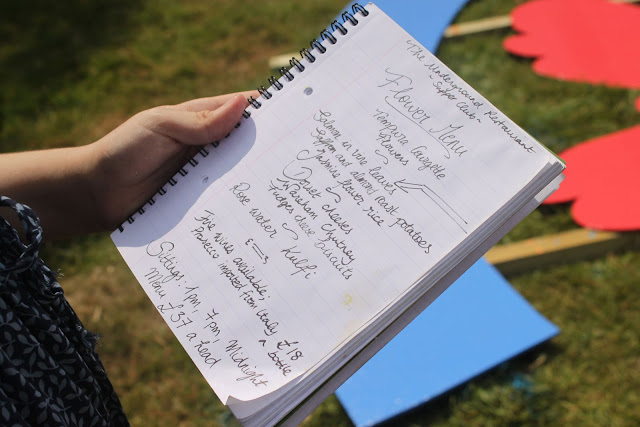 The Underground Restaurant
~ Supper Club ~
Flower Menu
Tempura Courgette
Flowers
Salmon in vine leaves
Saffron and almond roast potatoes
Jasmine flower rice
Dorset cheeses
Chutney
Fudges cheese biscuits
Rose water Kulfi
Fine wines available:
Prosecco imported from Italy £18
a bottle
Sittings: 1pm, 7pm, Midnight
Menu £37 a head